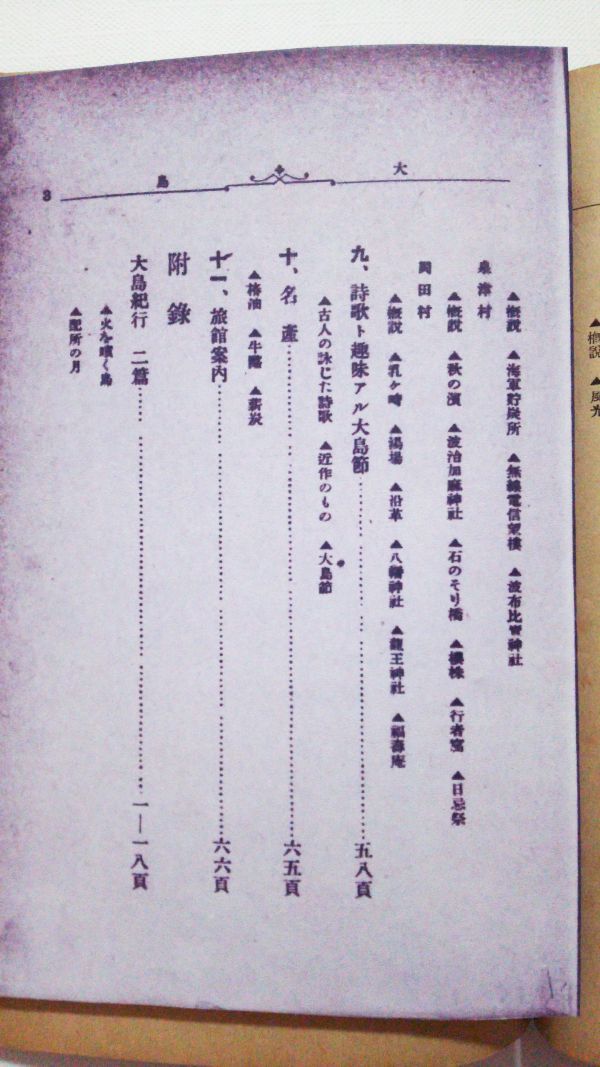 大島
3
▲概説 ▲海軍貯炭所 ▲無線電信望樓 ▲波布比賣神社
泉津村
▲概説 ▲秋の濱 ▲波治加麻神社 ▲石のそり橋 ▲櫻株 ▲行者窟 ▲日忌祭
岡田村
▲概説 ▲乳ヶ崎 ▲湯場 ▲沿革 ▲八幡神社 ▲龍王神社 ▲福壽庵
九、詩歌ト趣味アル大島節……………………五八頁
▲古人の詠じた詩歌 ▲近作のもの ▲大島節
十、名產……………………六五頁
▲椿油 ▲牛酪 ▲薪炭
十一、旅館案内……………………六六頁
附錄
大島紀行 二篇……………………一―一八頁
▲火を噴く島
▲配所の月
▲概説 ▲風光